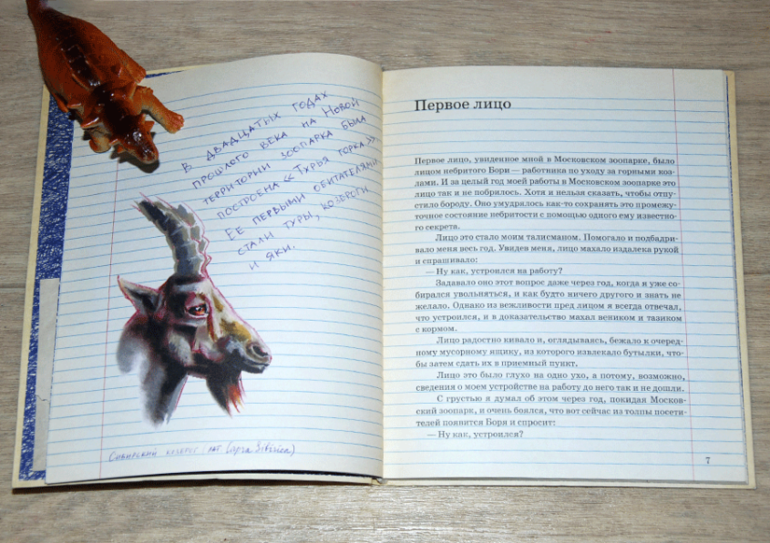 В ДВАДЦАТЫХ ГОДАХ
ПРОШЛОГО ВЕКА НА НОВОЙ
ТЕРРИТОРИИ ЗООПАРКА БЫЛА
ПОСТРОЕНА «ТУРЬЯ ГОРКА».
ЕЕ ПЕРВЫМИ ОБИТАТЕЛЯМИ
СТАЛИ ТУРЫ, КОЗЕРОГИ
И ЯКИ.
СИБИРСКИЙ КОЗЕРОГ (ЛАТ. Capra Sibirica)
Первое лицо
Первое лицо, увиденное мной в Московском зоопарке, было
лицом небритого Бори — работника по уходу за горными коз-
лами. И за целый год моей работы в Московском зоопарке это
лицо так и не побрилось. Хотя и нельзя сказать, чтобы отпу-
стило бороду. Оно умудрялось как-то сохранять это промежу-
точное состояние небритости с помощью одного ему известно-
го секрета.
Лицо это стало моим талисманом. Помогало и подбадри-
вало меня весь год. Увидев меня, лицо махало издалека рукой
и спрашивало:
— Ну как, устроился на работу?
Задавало оно этот вопрос даже через год, когда я уже со-
бирался увольняться, и как будто ничего другого и знать не
желало. Однако из вежливости пред лицом я всегда отвечал,
что устроился, и в доказательство махал веником и тазиком
с кормом.
Лицо радостно кивало и, оглядываясь, бежало к очеред-
ному мусорному ящику, из которого извлекало бутылки, что-
бы затем сдать их в приемный пункт.
Лицо это было глухо на одно ухо, а потому, возможно,
сведения о моем устройстве на работу до него так и не дошли.
С грустью я думал об этом через год, покидая Москов-
ский зоопарк, и очень боялся, что вот сейчас из толпы посети-
телей появится Боря и спросит:
— Ну как, устроился?
7